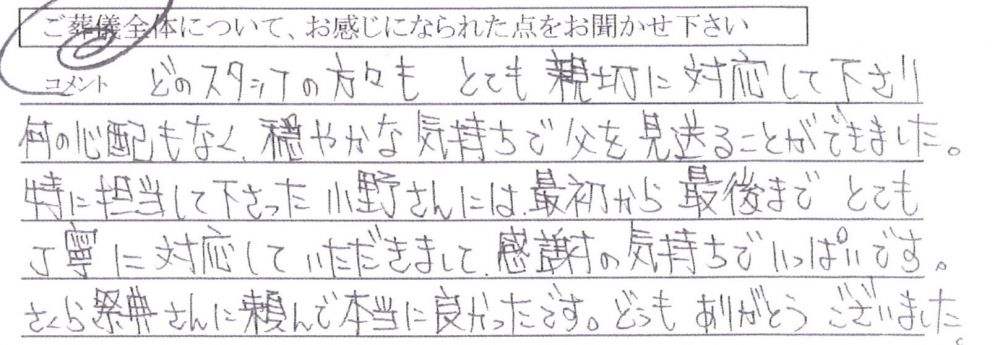 ご葬儀全体について、お感じになられた点をお聞かせ下さい
コメント どのスタッフの方々も とても 親切に 対応して下さり
何の心配もなく、穏やかな気持ちで父を見送ることができました。
特に担当して下さった小野さんには、最初から最後まで とても
丁寧に対応していただきまして、感謝の気持ちでいっぱいです。
さくら祭典さんに頼んで本当に良かったです。どうも ありがとう ございました。